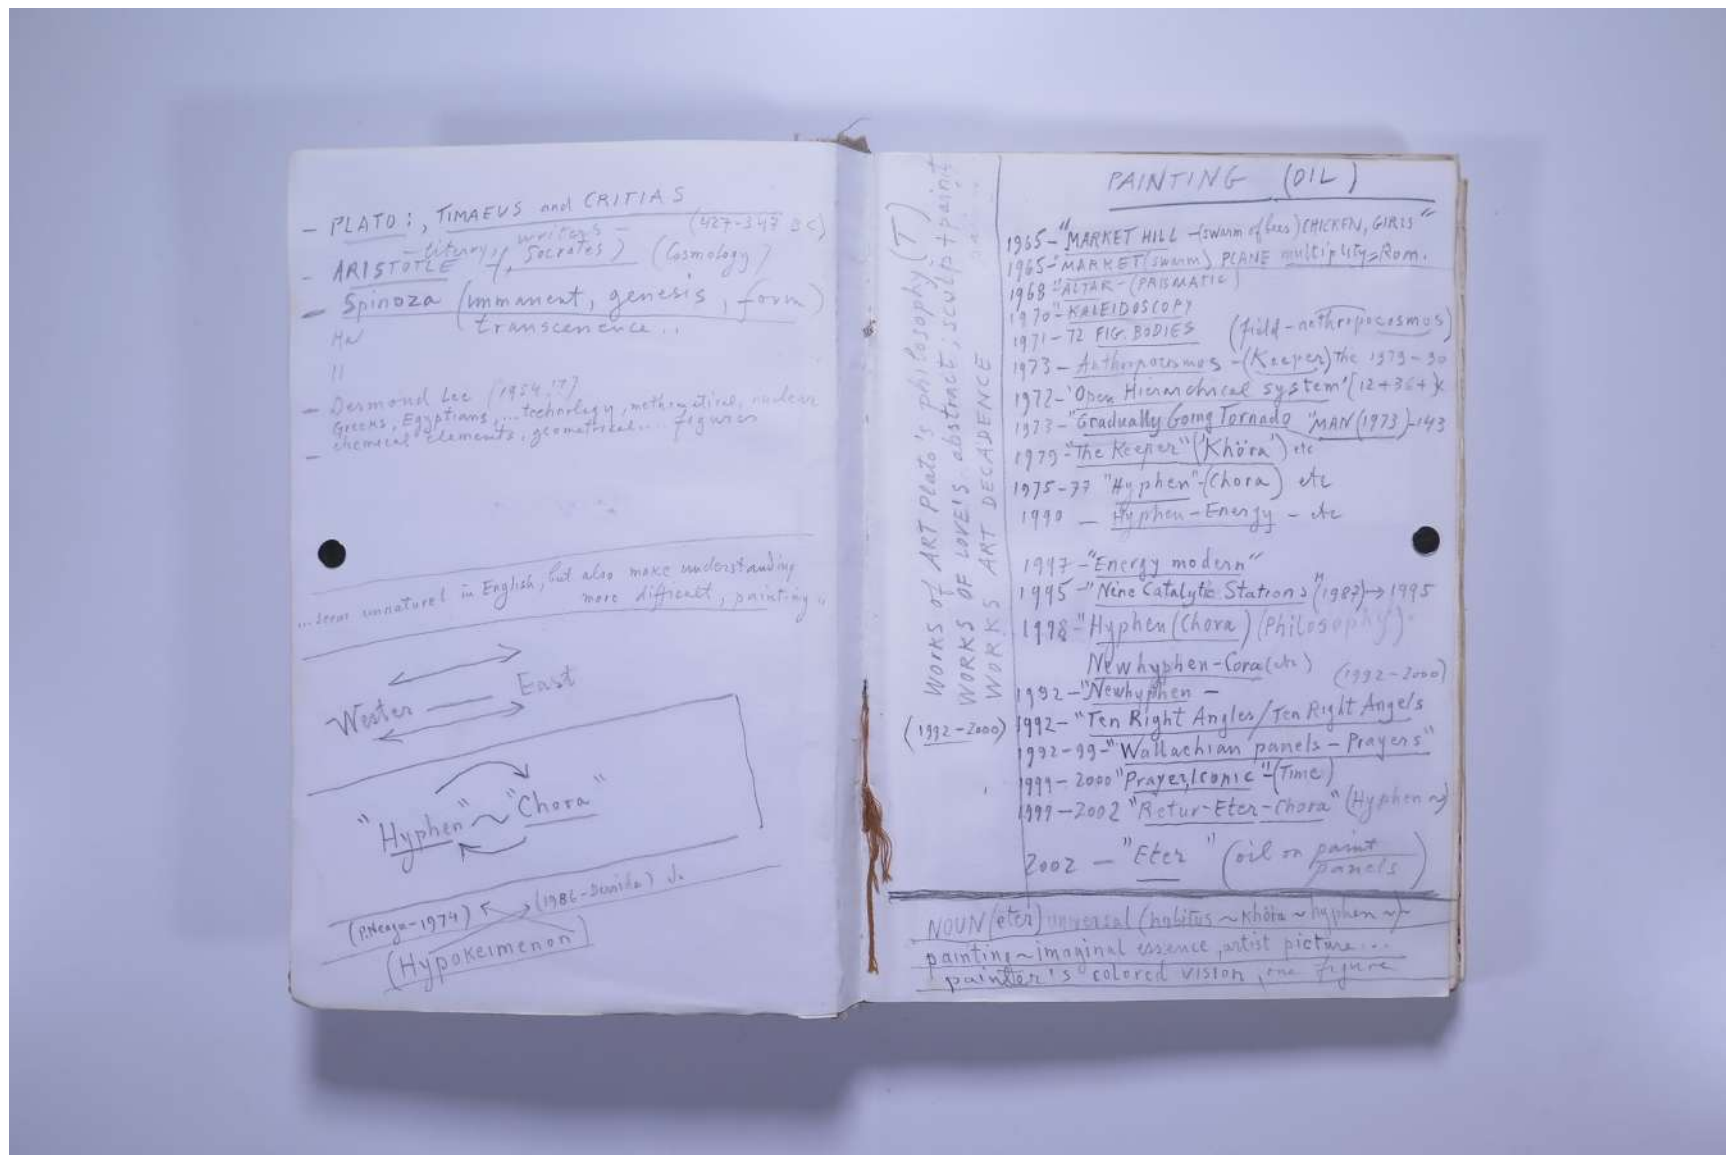 - PLATO:, TIMAEUS and CRITIAS
(427-347 BC)
- literary, writers -
- ARISTOTLE -(, Socrates) (Cosmology)
- Spinoza (immanent, genesis, form)
transcenence..
11
- Desmond Lee (1954,!?)
Greeks, Egyptians, ...technology, mathematical, nuclear
chemical elements, geometrical.... figures
-
...seem unnaturel in English, but also make understanding
more difficult, painting
Wester — East
"Hyphen" ~ "Chora"
(P.Neagu-1974) (1986-Derrida)
(Hypokeimenon)
WORKS of ART Plato's philosophy (T)
WORKS OF LOVE'S abstract; sculpt+paint
WORKS ART DECADENCE
(1992-2000)
PAINTING (OIL)
1965-"MARKET HILL -(swarm of bees) CHICKEN, GIRLS"
1965-"MARKET (swarm) PLANE multiplity=Rom.
1968-"ALTAR-(PRISMATIC)
1970-KALEIDOSCOPY
1971-72 FIG. BODIES (field-nethropocosmos)
1973-Anthropocosmos-(Keeper) the 1973-90
1972-'Open Hierarchical system' (12+36+)
1973-"Gradually Going Tornado "MAN (1973)-143
1979-"The Keeper" ('Khöra') etc
1975-77 "Hyphen"-(Chora) etc
1990 - Hyphen-Energy - etc
1997-"Energy modern"
1995-"Nine Catalytic Stations" (1987)→1995
1998-"Hyphen (Chora) (Philosophy)
Newhyphen-Cora (etc) (1992-2000)
1992-"Newhyphen -
1992-"Ten Right Angles/Ten Right Angels
1992-99-"Wallachian panels-Prayers"
1999-2000 "Prayer, Iconic"-(Time)
1999-2002 "Retur-Eter-Chora" (Hyphen~)
2002 - "Eter" (oil on paint
panels)
NOUN (eter) universal (habitus ~ Khöra ~ hyphen ~)-
painting ~ imaginal essence, artist picture...
painter's colored vision, one figure